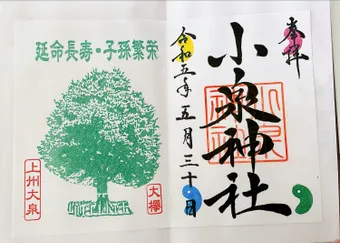 延命長寿・子孫繁栄
上州大泉
大欅
奉拝
小泉神社
令和五年五月三十日